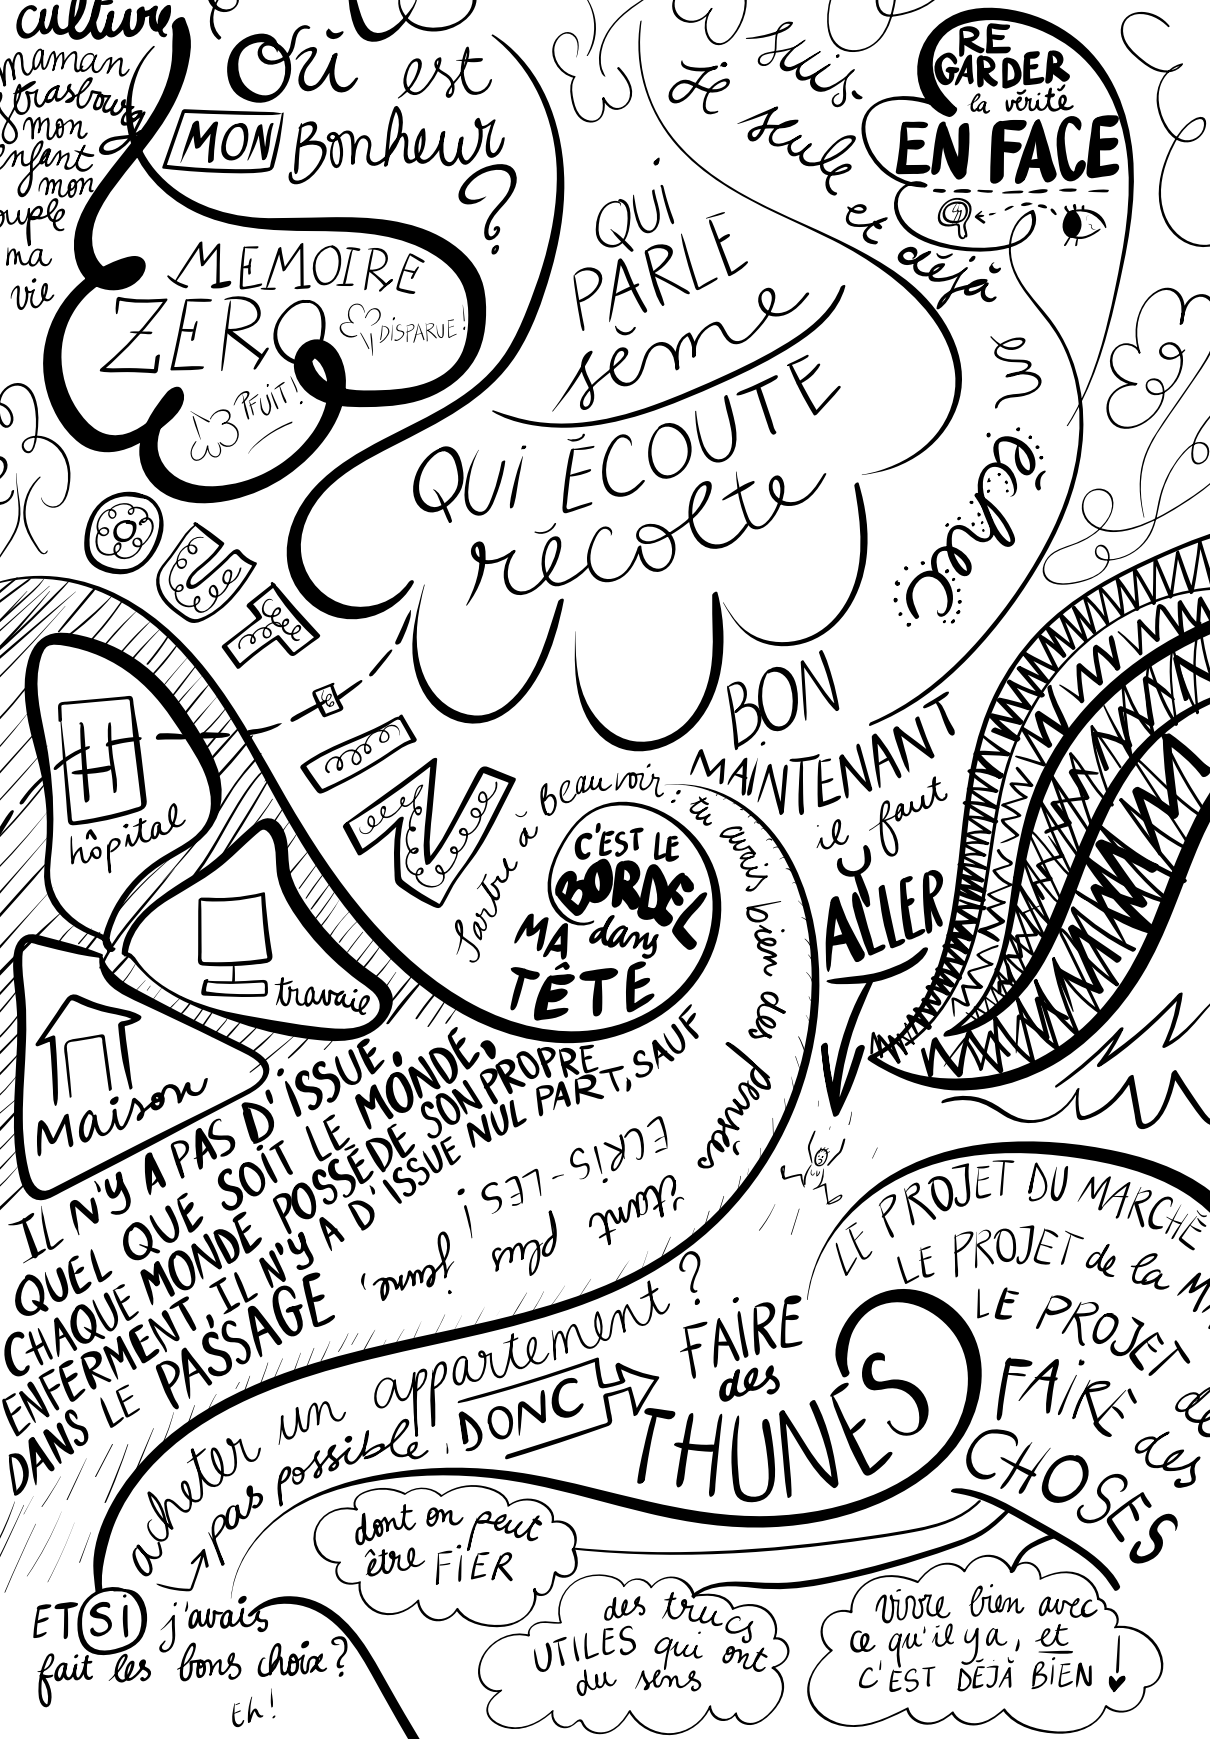 culture
maman
strasbourg
mon
enfant
mon
couple
ma
vie
Où est
MON Bonheur
?
MEMOIRE
ZERO
DISPARUE!
PFUIT!
QUI
PARLE
sème
QUI ÉCOUTE
récolte
Je suis
seule et déjà
en
échec
RE
GARDER
la vérité
EN FACE
ROUTINE
H
hôpital
travail
Maison
Sartre à Beauvoir : tu avais bien des pensées
étant plus jeune,
ECRIS-LES!
C'EST LE
BORDEL
dans
MA
TÊTE
BON
MAINTENANT
il faut
Y
ALLER
IL N'Y A PAS D'ISSUE.
QUEL QUE SOIT LE MONDE,
CHAQUE MONDE POSSÈDE SON PROPRE
ENFERMENT, IL N'Y A D'ISSUE NUL PART, SAUF
DANS LE PASSAGE
acheter un appartement ?
pas possible.
DONC
FAIRE
des
THUNES
LE PROJET DU MARCHÉ
LE PROJET de la
LE PROJET de
FAIRE des
CHOSES
dont on peut
être FIER
des trucs
UTILES qui ont
du sens
vivre bien avec
ce qu'il y a, et
C'EST DÉJÀ BIEN !
ET SI j'avais
fait les bons choix?
Eh!